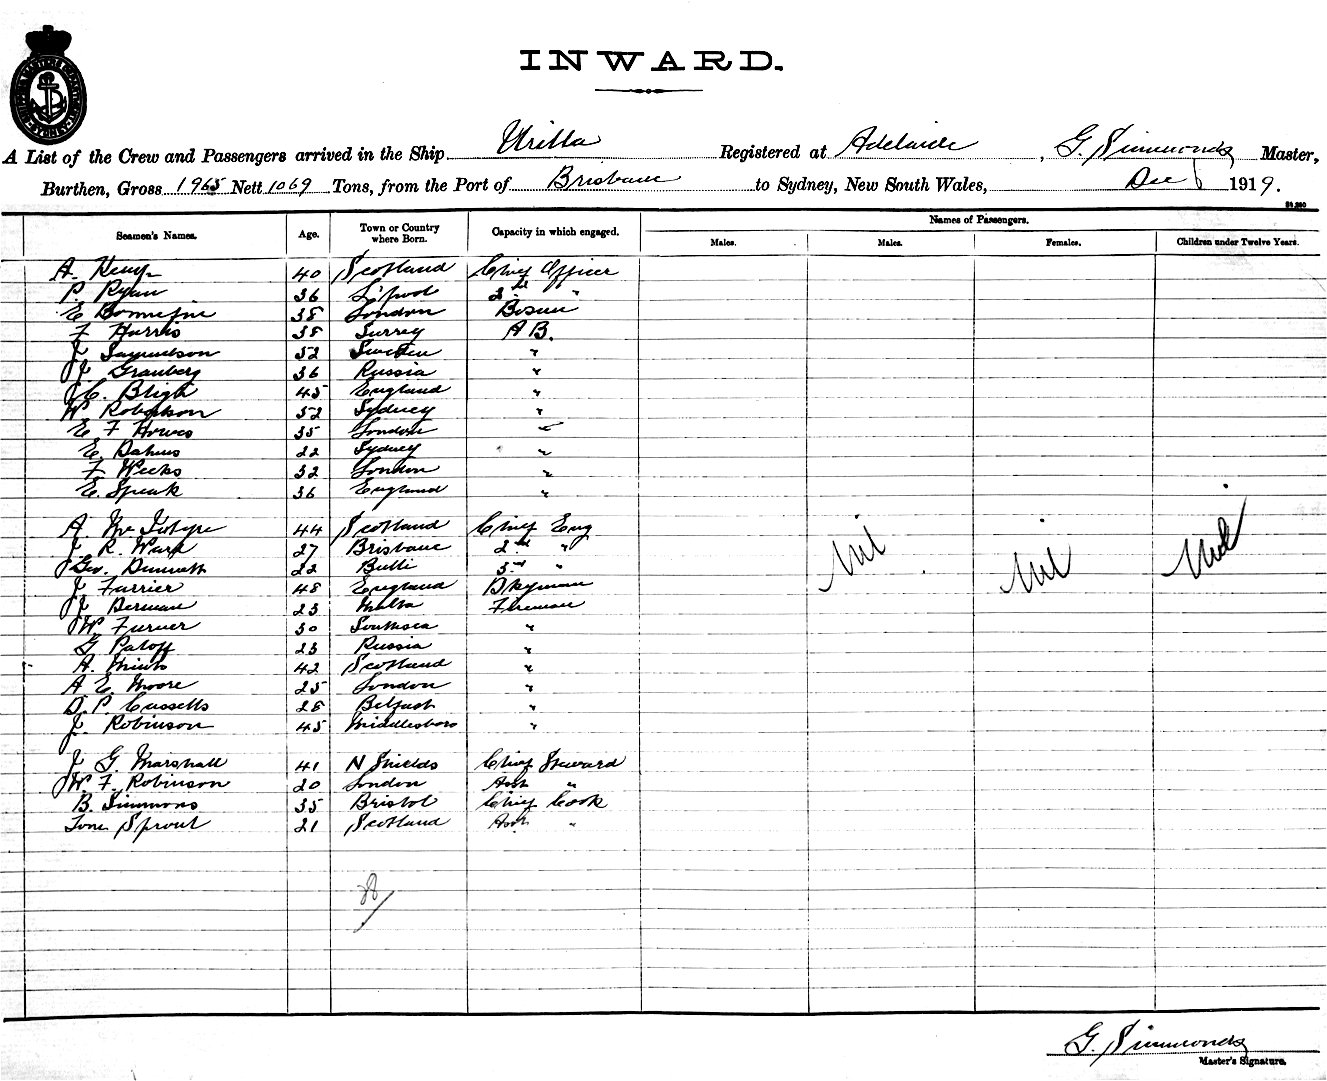 INWARD.
A List of the Crew and Passengers arrived in the Ship Urilla Registered at Adelaide, G. Simmonds Master,
Burthen, Gross 1965 Nett 1069 Tons, from the Port of Brisbane to Sydney, New South Wales, Dec 6 1919.
Names of Passengers.
Seamen's Names. Age. Town or Country where Born. Capacity in which engaged. Males. Males. Females. Children under Twelve Years.
A. 40 Scotland Chief Officer
P. Ryan 36 L'pool 2nd "
E 38 London Bosun
F Harris 38 Surrey A B.
J Samuelson 52 Sweden "
J Granberg 36 Russia "
J C. Bligh 45 England "
W Robertson 52 Sydney "
E F Howes 35 London "
E. 22 Sydney "
F Weeks 32 London "
E. Speak 36 England "
A. McIntyre 44 Scotland Chief Eng
J. R. Wark 27 Brisbane 2nd "
Geo. 22 Bulli 3rd "
J Furrier 48 England Dkyman
J Berman 23 Malta Fireman
W Turner 30 Southsea "
G Patoff 23 Russia "
A. 42 Scotland "
A E. Moore 25 London "
D P Cassells 28 Belfast "
J. Robinson 45 Middlesboro "
Nil Nil Nil
J G. Marshall 41 N Shields Chief Steward
W. F. Robinson 20 London Asst "
B. Simmons 35 Bristol Chief Cook
Sprout 21 Scotland Asst "
28/
G. Simmonds
Master's Signature.